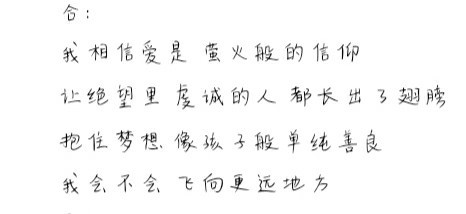 合：
我相信爱是萤火般的信仰
让绝望里虔诚的人都长出了翅膀
抱住梦想像孩子般单纯善良
我会不会飞向更远地方